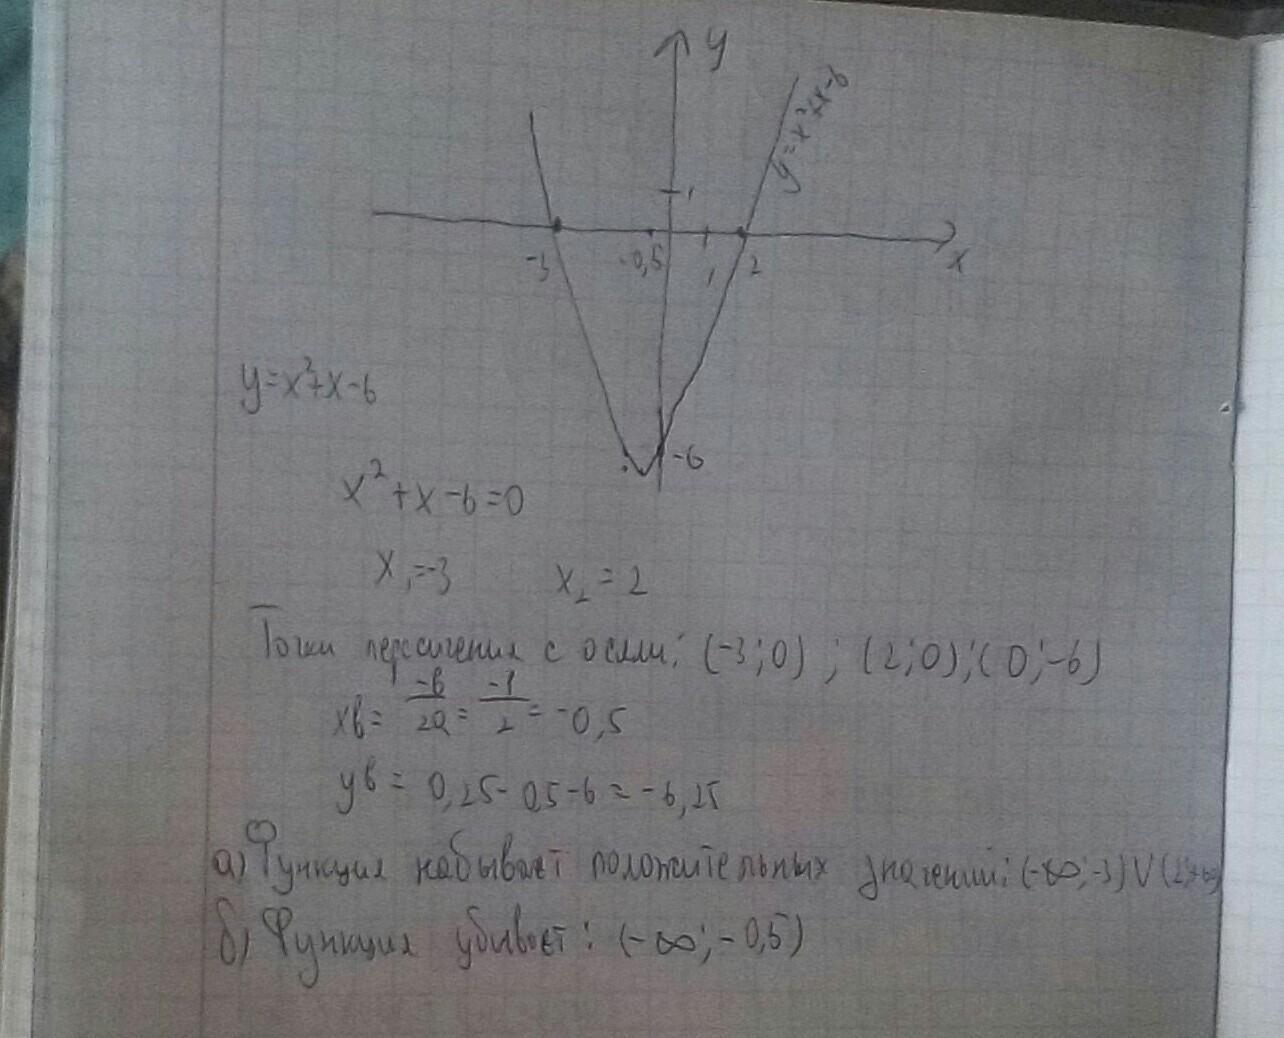 y
y=x²+x-6
1
-3
-0,5
1
2
x
-6
y=x²+x-6
x²+x-6=0
x₁=-3 x₂=2
Точки персичения с осями: (-3;0) ; (2;0);(0;-6)
xв= -в/2a = -1/2 = -0,5
yв = 0,25-0,5-6 = -6,25
а) Функция набывает положительных значений: (-∞;-3)∪(2;+∞)
б) Функция убивает: (-∞;-0,5)